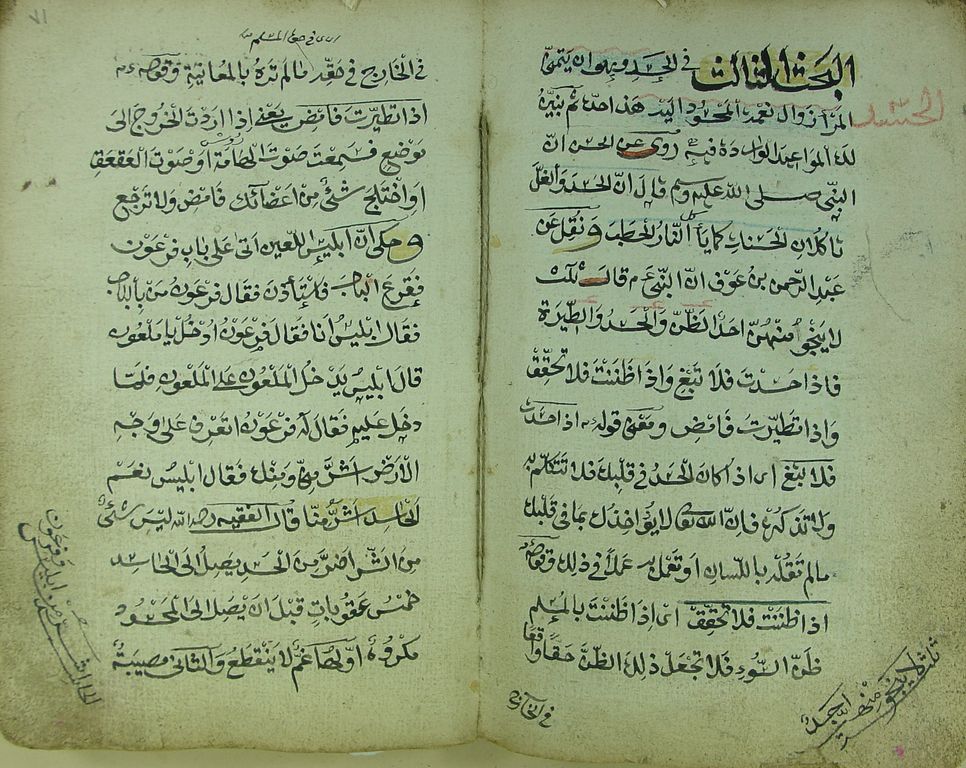 البحث الثالث في الحسد وهو ان يتمنى
الحسد
المرأ زوال نعمة المحسود اليه هذا احد ثم نبيه
لك المواعيد الواردة فيه روى عن الحسن ان
النبي صلى الله عليه وسلم قال ان الحسد والغل
تاكلان الحسنات كما يأكل النار الحطب ونقل عن
عبد الرحمن بن عوف ان النبي عم قال ثلث
لا ينجوا منهن احد الظن والحسد والطيرة
فاذا حسدت فلا تبغ واذا ظننت فلا تحقق
واذا تطيرت فامض ومعنى قوله اذا حسدت
فلا تبغ اى اذا كان الحسد في قلبك فلا تتكلم به
ولا تذكره فان الله تعالى لا يؤاخذك بما في قلبك
مالم تقله باللسان او تعمل به عملا في ذلك وقوله
اذا ظننت فلا تحقق اى اذا ظننت بالمسلم
ظن السوء فلا تجعل ذلك الظن حقا واقعا
في الخارج
ثلثة لا ينجو منهن احد
٧١
اى في حق المسلم
في الخارج في حقه مالم تره بالمعاينة وقوله
اذا تطيرت فامض يعنى اذا اردت الخروج الى
موضع فسمعت صوت الهامة او صوت العقعق
او اختلج شئ من اعضائك فامض ولا ترجع
وحكى ان ابليس اللعين اتى على باب فرعون
فقرع الباب فاستأذن فقال فرعون من بالباب
فقال ابليس انا فقال فرعون ادخل يا ملعون
قال ابليس يدخل الملعون على الملعون فلما
دخل عليه فقال له فرعون اتعرف على وجه
الارض اشر منى ومنك فقال ابليس نعم
الحاسد اشر منا قال الفقيه رحمه الله ليس شئ
من الشر اضر من الحسد يصل الى الحاسد
خمس عقوبات قبل ان يصل الى المحسود
مكروه اولها غم لا ينقطع والثانى مصيبة